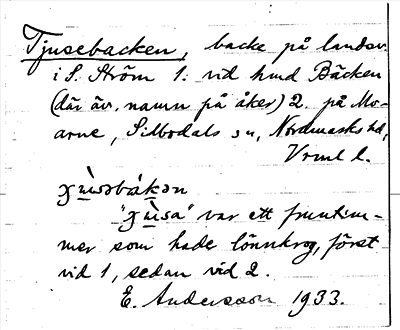 Tjusebacken, backe på landsv.
i S. Ström 1. vid hmd Bäcken
(där äv. namn på åker) 2. på Mo-
arne, Silbodals sn, Nordmarks hd,
Vrml l.
"
var ett fruntim-
mer som hade lönnkrog, först
vid 1, sedan vid 2.
E. Andersson 1933.